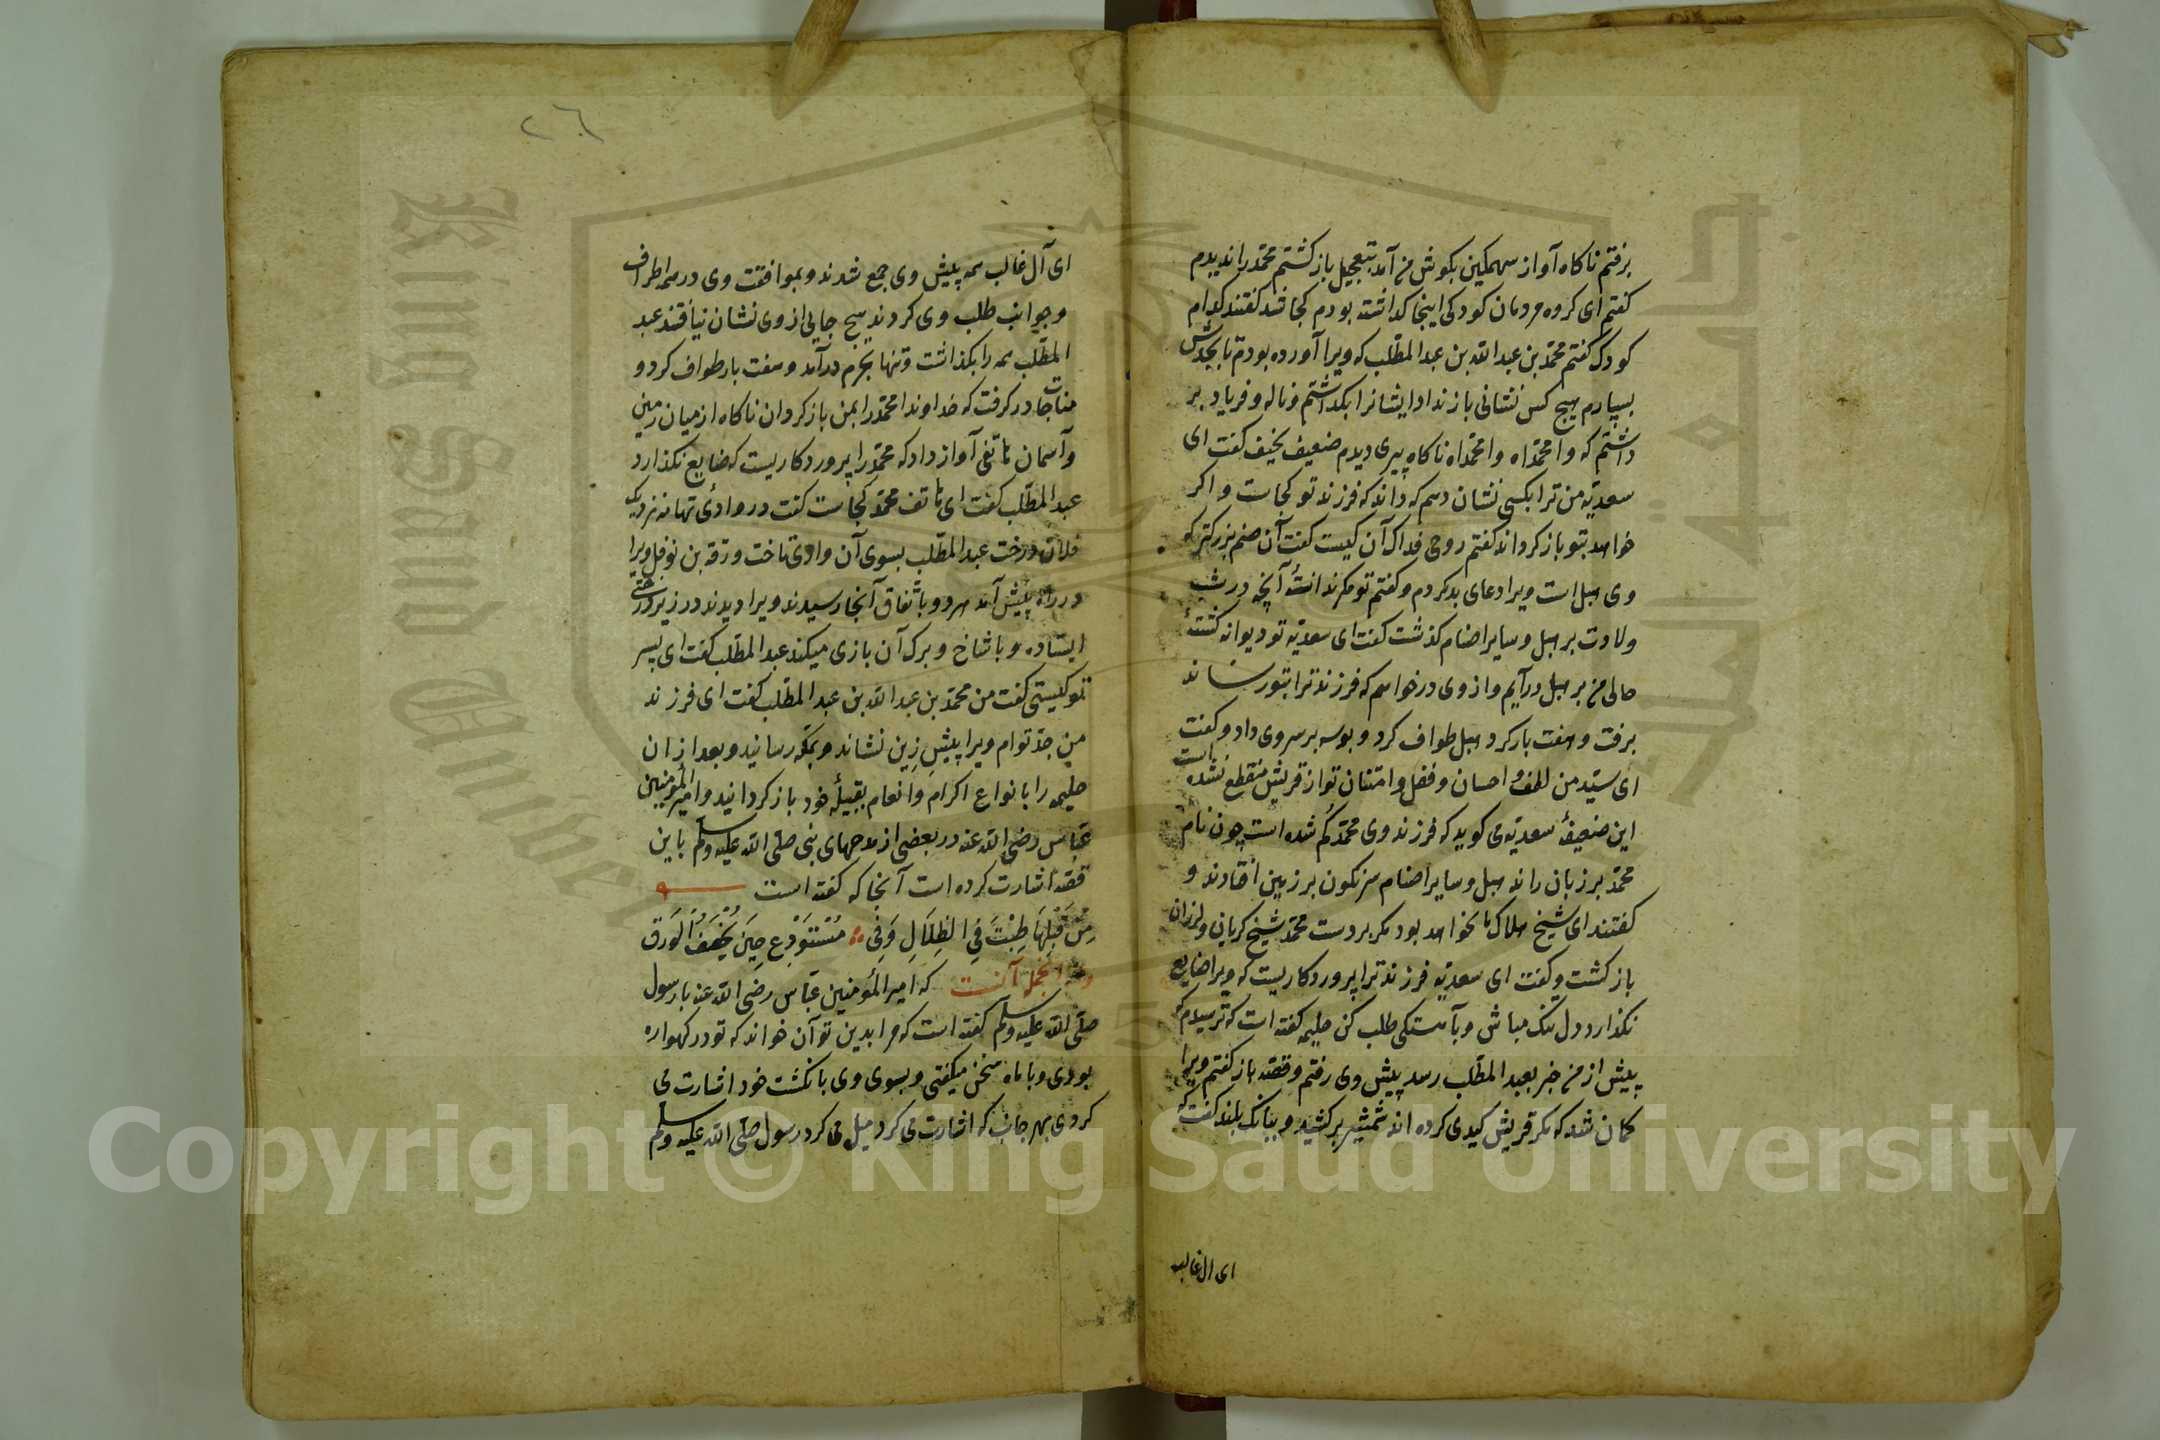 برفتم ناکاه آواز سهمکین بکوش من آمد بتعجیل باز کشتم محمّد را ندیدم
کفتم ای کروه مردمان کودکی اینجا کداشته بودم کجا شد کفتند کدام
کودک کفتم محمّد بن عبد الله بن عبد المطّلب که ویرا آورده بودم تا بجدّش
بسپارم هیچ کس نشانی باز نداد ایشانرا بکداشتم و ناله و فریاد بر
داشتم که وا محمّداه وا محمّداه ناکاه پیری دیدم ضعیف نحیف کفت ای
سعدیّه من ترا بکسی نشان دهم که داند که فرزند تو کجاست و اکر
خواهد بتو باز کرداند کفتم روحی فداک آن کیست کفت آن صنم بزرکتر که
وی هبل است ویرا دعای بد کردم و کفتم تو مکر ندانستۀ آنچه در شب
ولادت بر هبل و سایر اصنام کذشت کفت ای سعدیّه تو دیوانه کشتۀ
حالی من بر هبل درآیم و از وی درخواهم که فرزند ترا بتو رساند
برفت و هفت بار کرد هبل طواف کرد و بوسه بر سر وی داد و کفت
ای سیّد من لطف و احسان و فضل و امتنان تو از قریش منقطع نشده است
این ضعیفۀ سعدیّه می کوید که فرزند وی محمّد کُم شده است چون نام
محمّد بر زبان راند هبل و سایر اصنام سرنکون بر زمین افتادند و
کفتند ای شیخ هلاک ما نخواهد بود مکر بر دست محمّد شیخ کریان و لرزان
باز کشت و کفت ای سعدیّه فرزند ترا پروردکاریست که ویرا ضایع
نکذارد دل تنک مباش و بآهستکی طلب کن حلیمه کفته است که ترسیدم که
پیش از من خبر بعبد المطّلب رسد پیش وی رفتم و قصّه باز کفتم ویرا
کمان شد که مکر قریش کیدی کرده اند شمشیر برکشید و ببانک بلند کفت که
ای ال غالب
٢٦
ای آل غالب همه پیش وی جمع شدند و بموافقت وی در همه اطراف
و جوانب طلب وی کردند هیچ جایی از وی نشان نیافتند عبد
المطّلب همه را بکذاشت و تنها بحرم درآمد و هفت بار طواف کرد و
مناجات در کرفت که خداوندا محمّد را بمن باز کردان ناکاه از میان زمین
و آسمان هاتفی آواز داد که محمّد را پروردکاریست که ضایع نکذارد
عبد المطّلب کفت ای هاتف محمّد کجاست کفت در وادئ تهامه نزدیک
فلان درخت عبد المطّلب بسوی آن وادی تاخت ورقه بن نوفل ویرا
در راه پیش آمد هر دو باتفاق آنجا رسیدند ویرا دیدند در زیر درختی
ایستاده و با شاخ و برک آن بازی میکند عبد المطّلب کفت ای پسر
تو کیستی کفت من محمّد بن عبد الله بن عبد المطّلب کفت ای فرزند
من جدّ توام ویرا پیش زین نشاند و بمکّه رسانید و بعد از ان
حلیمه را بانواع اکرام و انعام بقبیلۀ خود باز کردانید و امیر المؤمنین
عبّاس رضی الله عنه در بعضی از مدحهای نبی صلّی الله علیه وسلّم باین
قصّه اشارت کرده است آنجا که کفته است
مِنْ قَبْلِهَا طِبْتَ فِی الظِلَالِ وَفِی مُسْتَوْدَعٍ حِینَ یُخْصَفُ الوَرَق
و ازانجمله آنست که امیر المؤمنین عبّاس رضی الله عنه با رسول
صلّی الله علیه وسلّم کفته است که مرا بدین تو آن خواند که تو در کهواره
بودی و با ماه سخن میکفتی و بسوی وی بانکشت خود اشارت می
کردی بهر جانب که اشارت می کرد میل می کرد رسول صلّی الله علیه وسلّم
King Saud Univer
Copyright © King Saud University